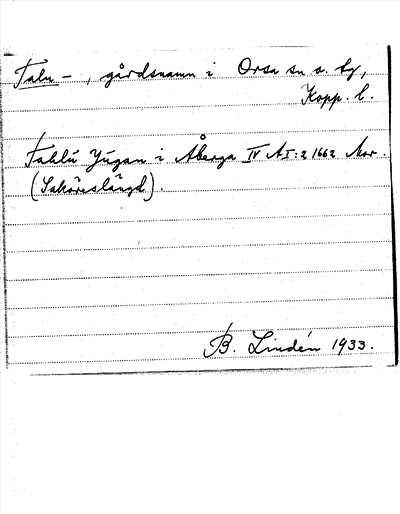 Falu -, gårdsnamn i Orsa sn o. by,
Kopp. l.
Fahlu Jugan i Åberga IV A I:2 1662 Mor.
(Saköreslängd).
B. Lindén 1933.